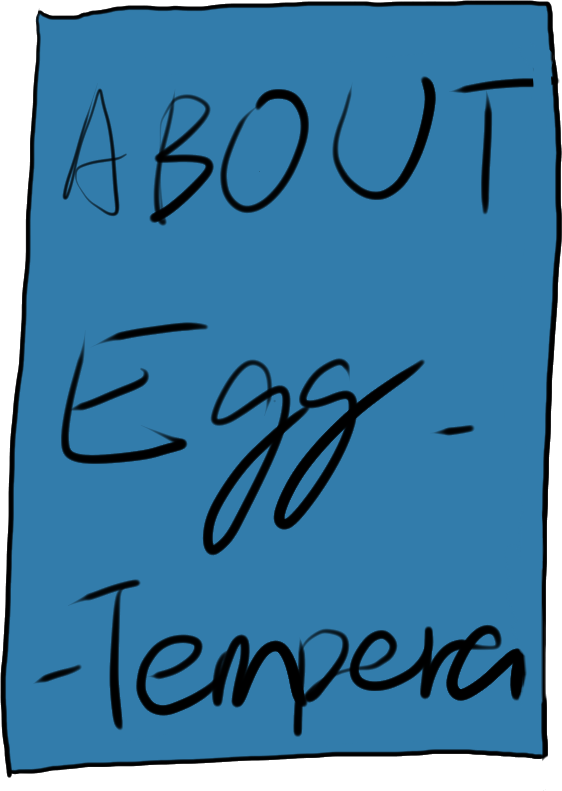 ABOUT
Egg-
-Tempera